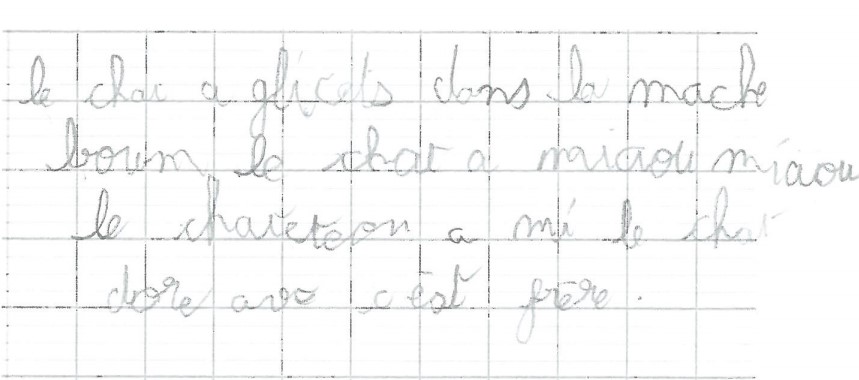 le chat a glicets dans la mache
boum le chat a miaou miaou
le chatetoon a mi le chat
dore avc c'est frère.